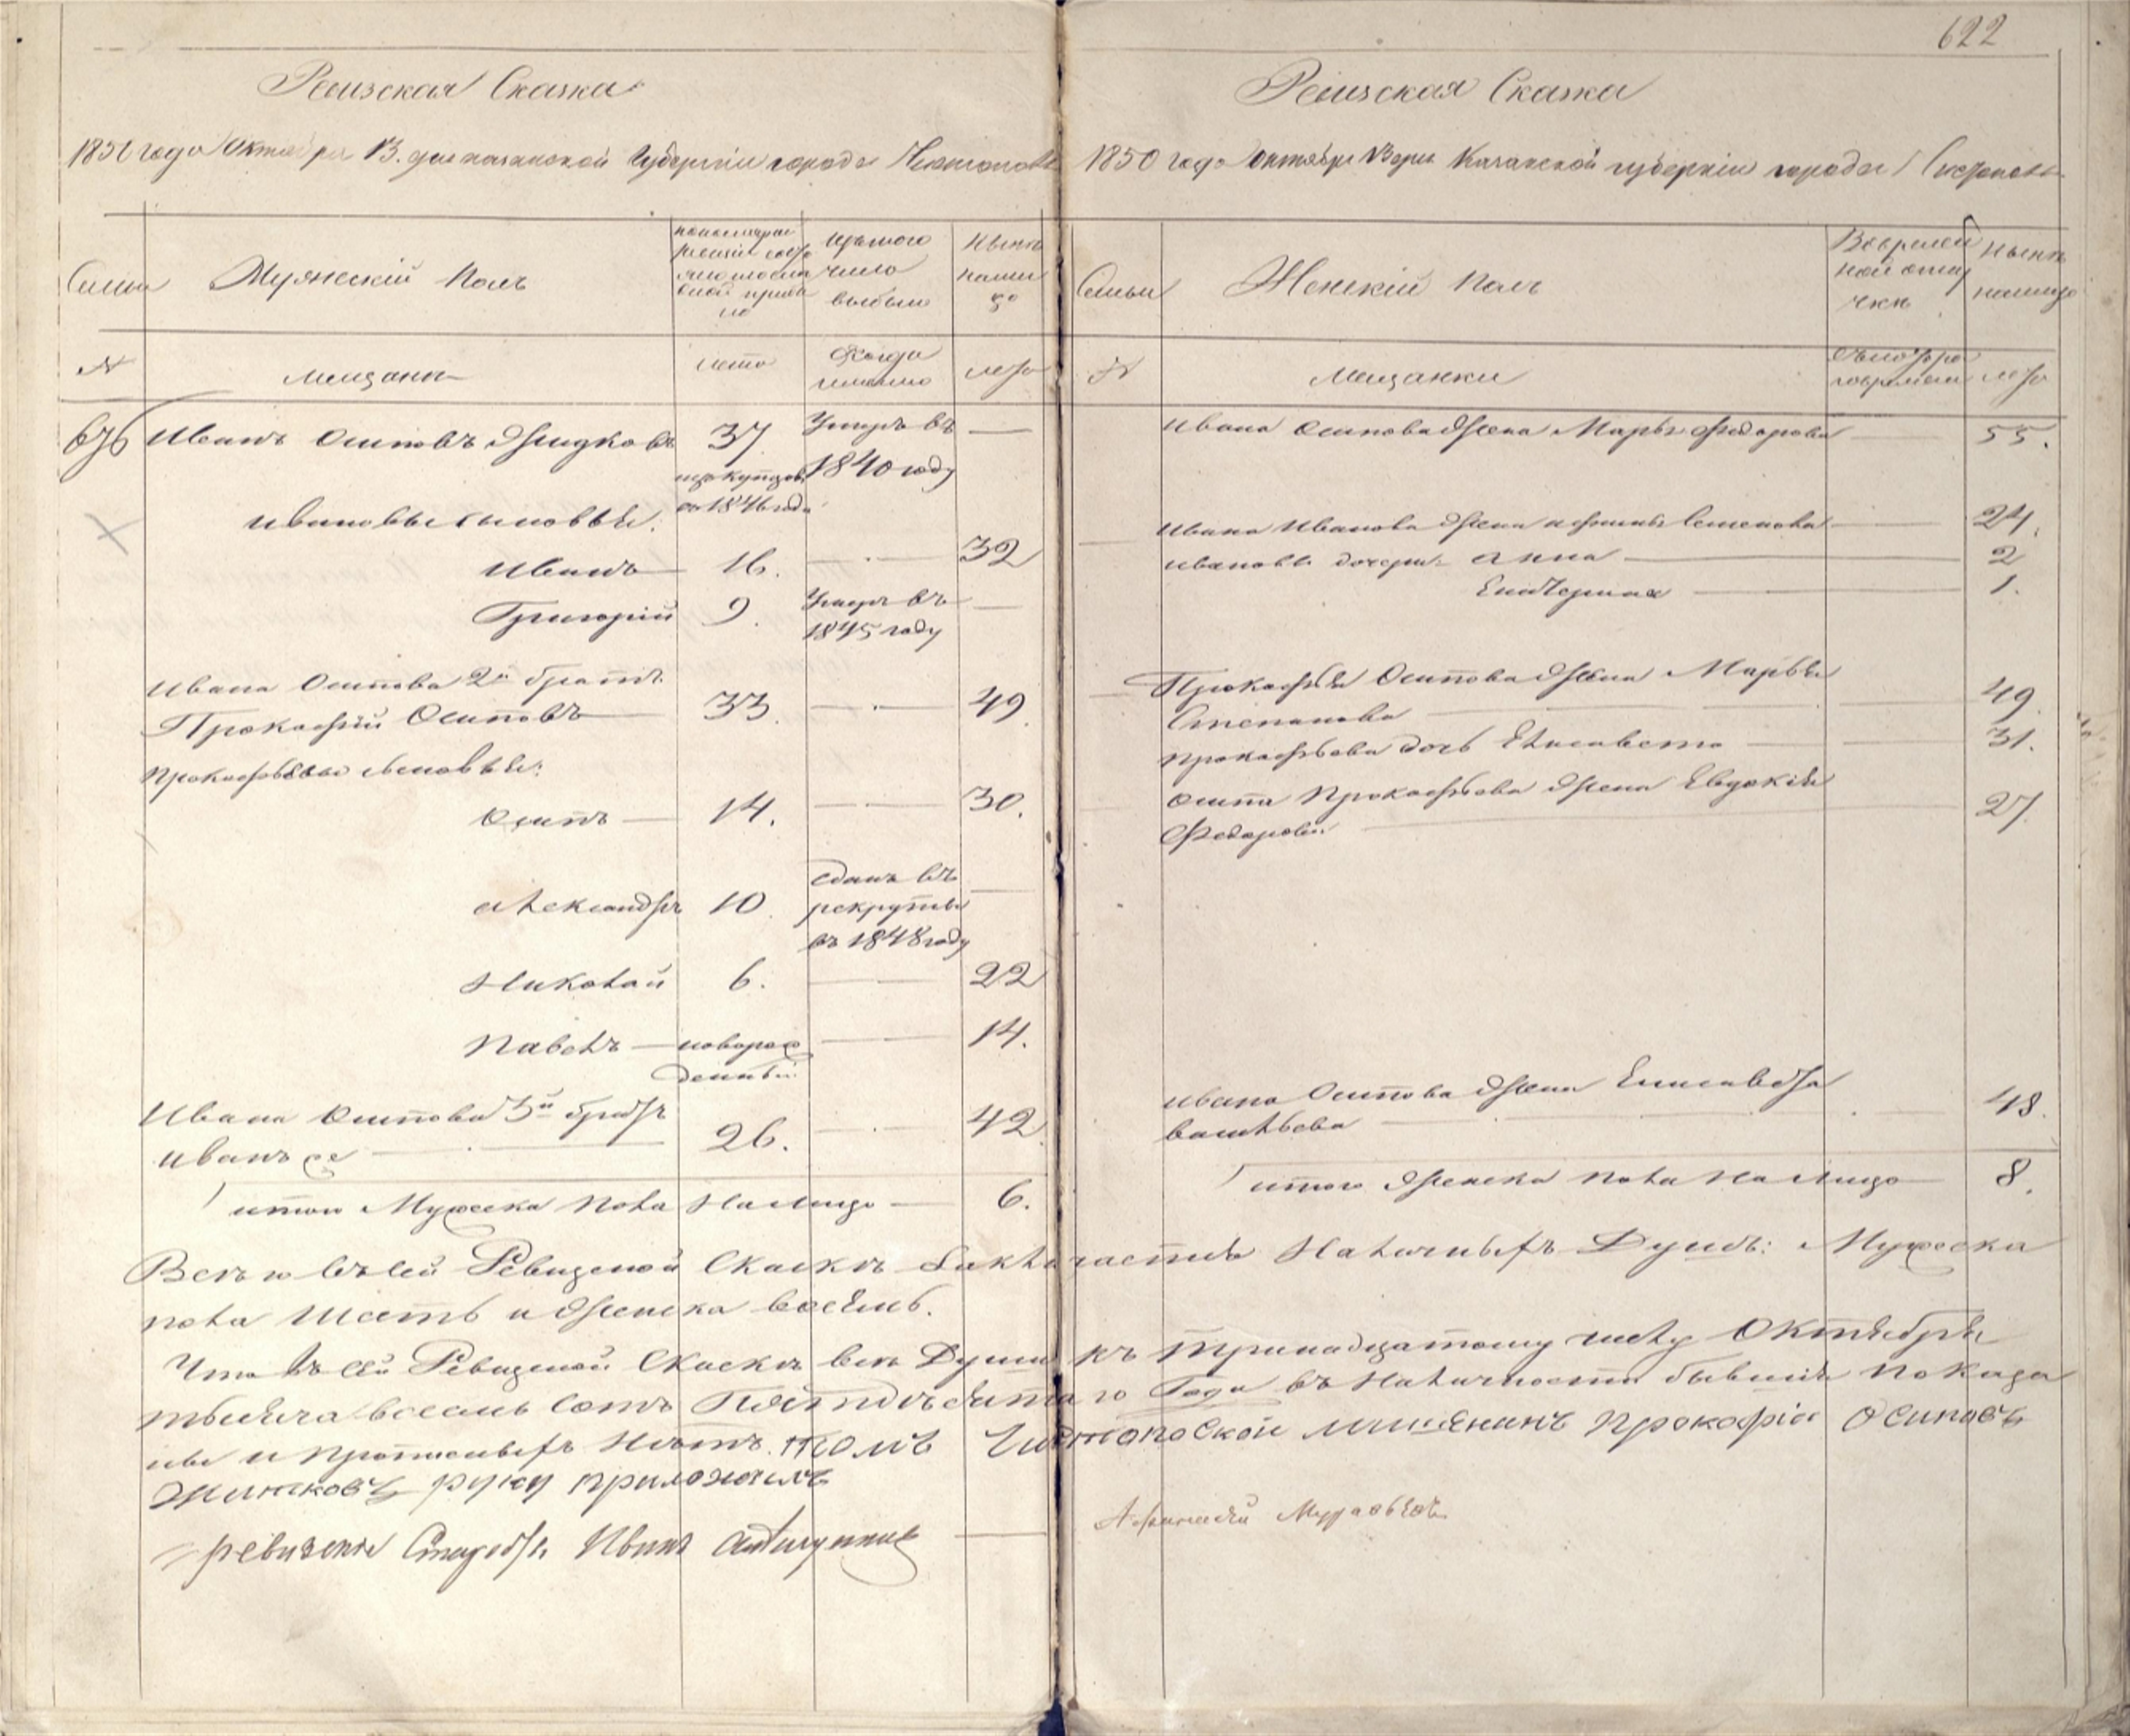 622
Ревизская Сказка
1850 года Октября 13. дня казанской Губернии города Чистополя
Семьи
Мужескій Полъ
Изъ того
число
выбыло
Нынѣ
на лицо
№
Мещанѣ
лета
Когда
именно
лета
676 Иванъ Осиповъ Жидковъ 37 Умеръ въ —
1840 году
из купцовъ
съ 1846 года
Ивановы сыновья:
Иванъ 16. — 32
Григорій 9. Умеръ въ —
1845 году
Ивана Осипова 2й братъ
Прокофій Осиповъ 33. — 49
Прокофьевы сыновья:
Осипъ — 14. — 30.
Александръ 10. сданъ въ —
рекруты
въ 1848 году
Николай 6. — 22
Павелъ — новорож — 14.
денный
Ивана Осипова 3й братъ
Иванъ же — 26. — 42
итого Мужеска пола на лицо — 6.
Ревизская Сказка
1850 года Октября 13 дня Казанской губерніи города Чистополя
Семьи
Женскій Полъ
Во времен
ной отлу
чкѣ
Нынѣ
на лицо
№
Мещанки
лета
Ивана Осипова жена Марья Федорова — 55.
Ивана Иванова жена Семенова — 24.
Ивановы дочери: Анна — 2
Екатерина — 1.
Прокофья Осипова жена Марья
Степанова — 49.
Прокофьева дочь Елисавета — 31.
Осипа Прокофьева жена Евдокія
Федорова — 27.
Ивана Осипова жена Елисавета
Васильева — 48.
итого женска пола на лицо — 8.
Всего въ сей Ревизской Скаскѣ заключается Наличныхъ Душъ: Мужеска
пола шесть и женска восемь.
Что въ сей Ревизской Скаскѣ все Души къ тринадцатому числу Октября
тысяча восемь сотъ Пятьдесятаго Года въ Наличности бывшія Показа
ны и прописныхъ нѣтъ. Чистопоской мишенинъ Прокофіи Осиповъ
Житковъ руку приложилъ
Афанасій Муравьевъ